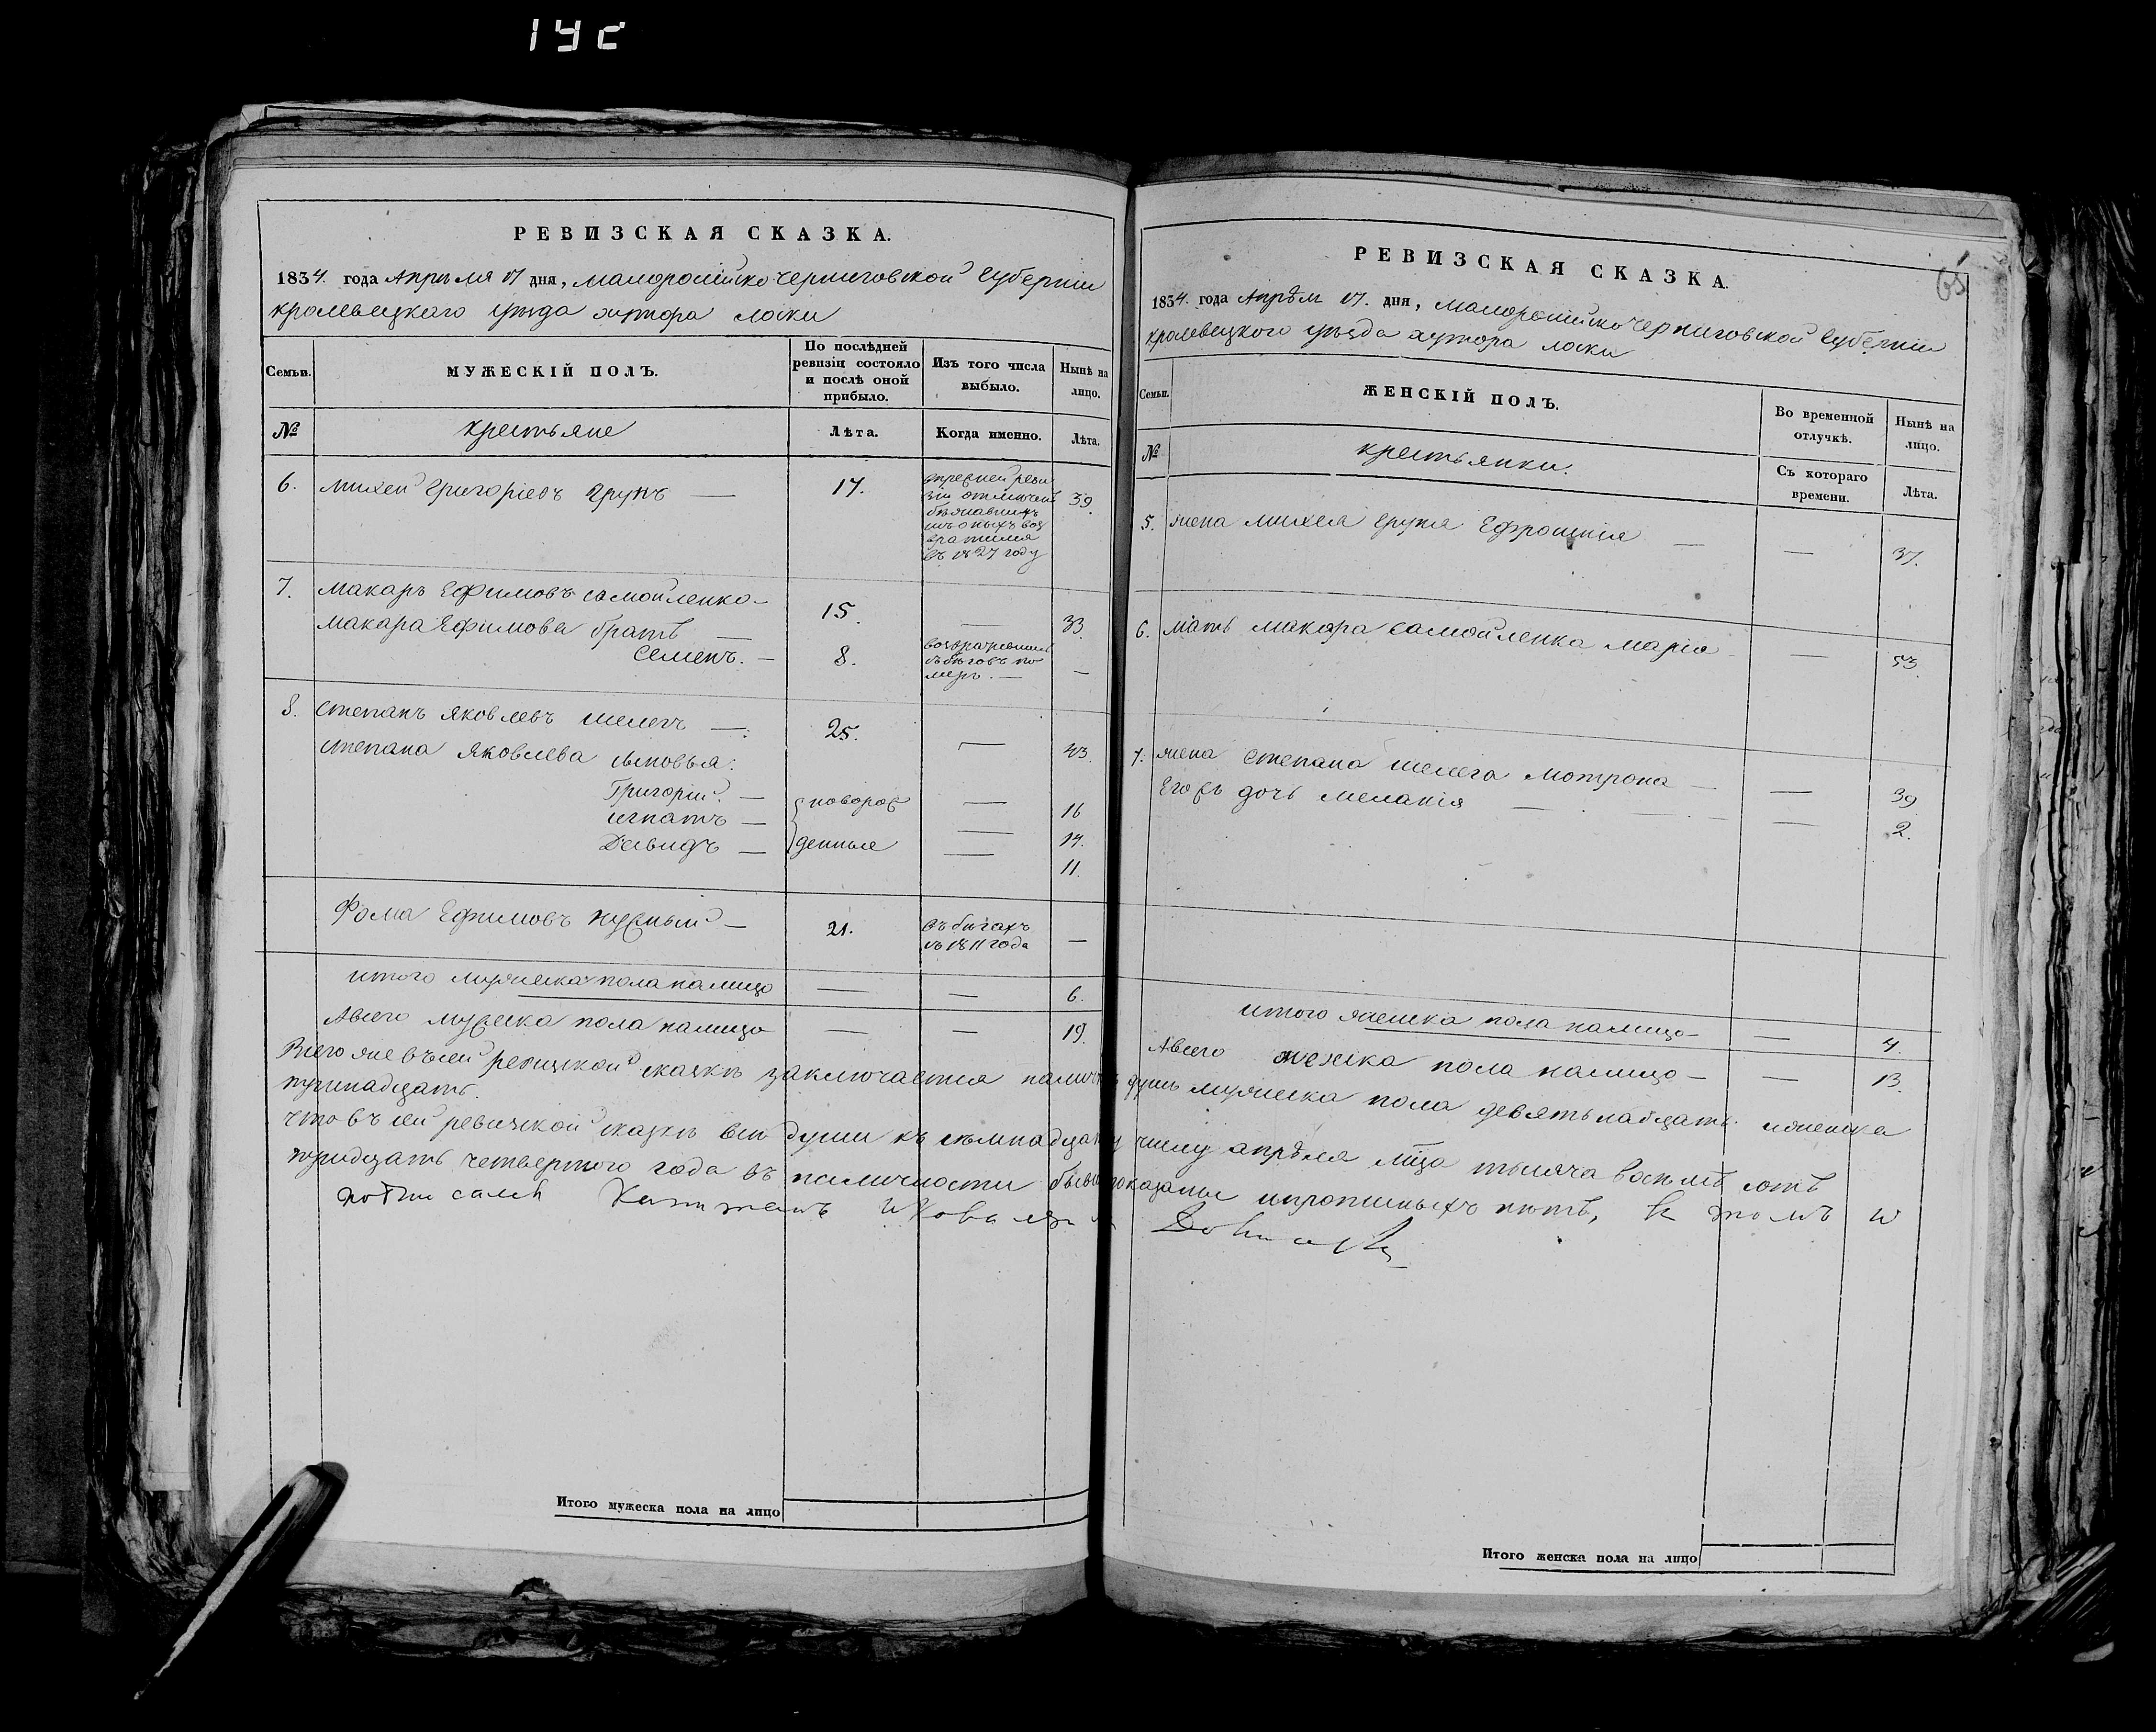 РЕВИЗСКАЯ СКАЗКА.
1834. года Апрѣля 17 дня, малоросійско черниговской Губерніи
кролевецкаго уѣзда хутора лоски
Семьи.
МУЖЕСКІЙ ПОЛЪ.
По послѣдней
ревизіи состояло
и послѣ оной
прибыло.
Изъ того числа
выбыло.
Нынѣ на
лицо.
№
крестьяне
Лѣта.
Когда именно.
Лѣта.
6. михей Григоріевъ Грунъ — 17. 39.
бежавшихъ
изъ оныхъ воз
вратился
въ 1827 году
7. макаръ Ефимовъ самойленко — 15. — 33.
макара Ефимова братъ —
Семенъ. — 8. —
бѣговъ по
меръ. —
8. степанъ яковлевъ шелегъ — 25. — 43.
степана яковлева сыновья:
Григорій. — новорож — 16
игнатъ — — 14.
Давидъ — денные — 11.
Фома Ефимовъ нужный — 21. въ бегахъ —
съ 1811 года
итого мужеска пола налицо — — 6.
Авсего мужеска пола налицо — — 19.
РЕВИЗСКАЯ СКАЗКА.
65
1834. года Апрѣля 17. дня, малоросійско черниговской Губерніи
кролевецкого уѣзда хутора лоски
Семьи.
ЖЕНСКІЙ ПОЛЪ.
Во временной
отлучкѣ.
Нынѣ на
лицо.
№
крестьянки.
Съ котораго
времени.
Лѣта.
5. жена михея Груня Ефросинія — — 37.
6. мать макара самойленка марія — 53.
7. жена степана шелега мотрона — — 39
Егожъ дочь меланія — — 2.
итого женска пола налицо — — 4.
Авсего женска пола налицо — — 13.
Всего же въ сей ревизской сказкѣ заключается налицо душъ мужеска пола девятьнадцать. иженска
тринадцать.
что въ сей ревизской сказкѣ всѣ души къ семнадцату числу апрѣля мца тысяча восемъ сотъ
тридцать четвертого года въ наличности бывшія показаны ипрописныхъ нѣтъ, въ томъ и
подписался
Итого мужеска пола на лицо
Итого женска пола на лицо